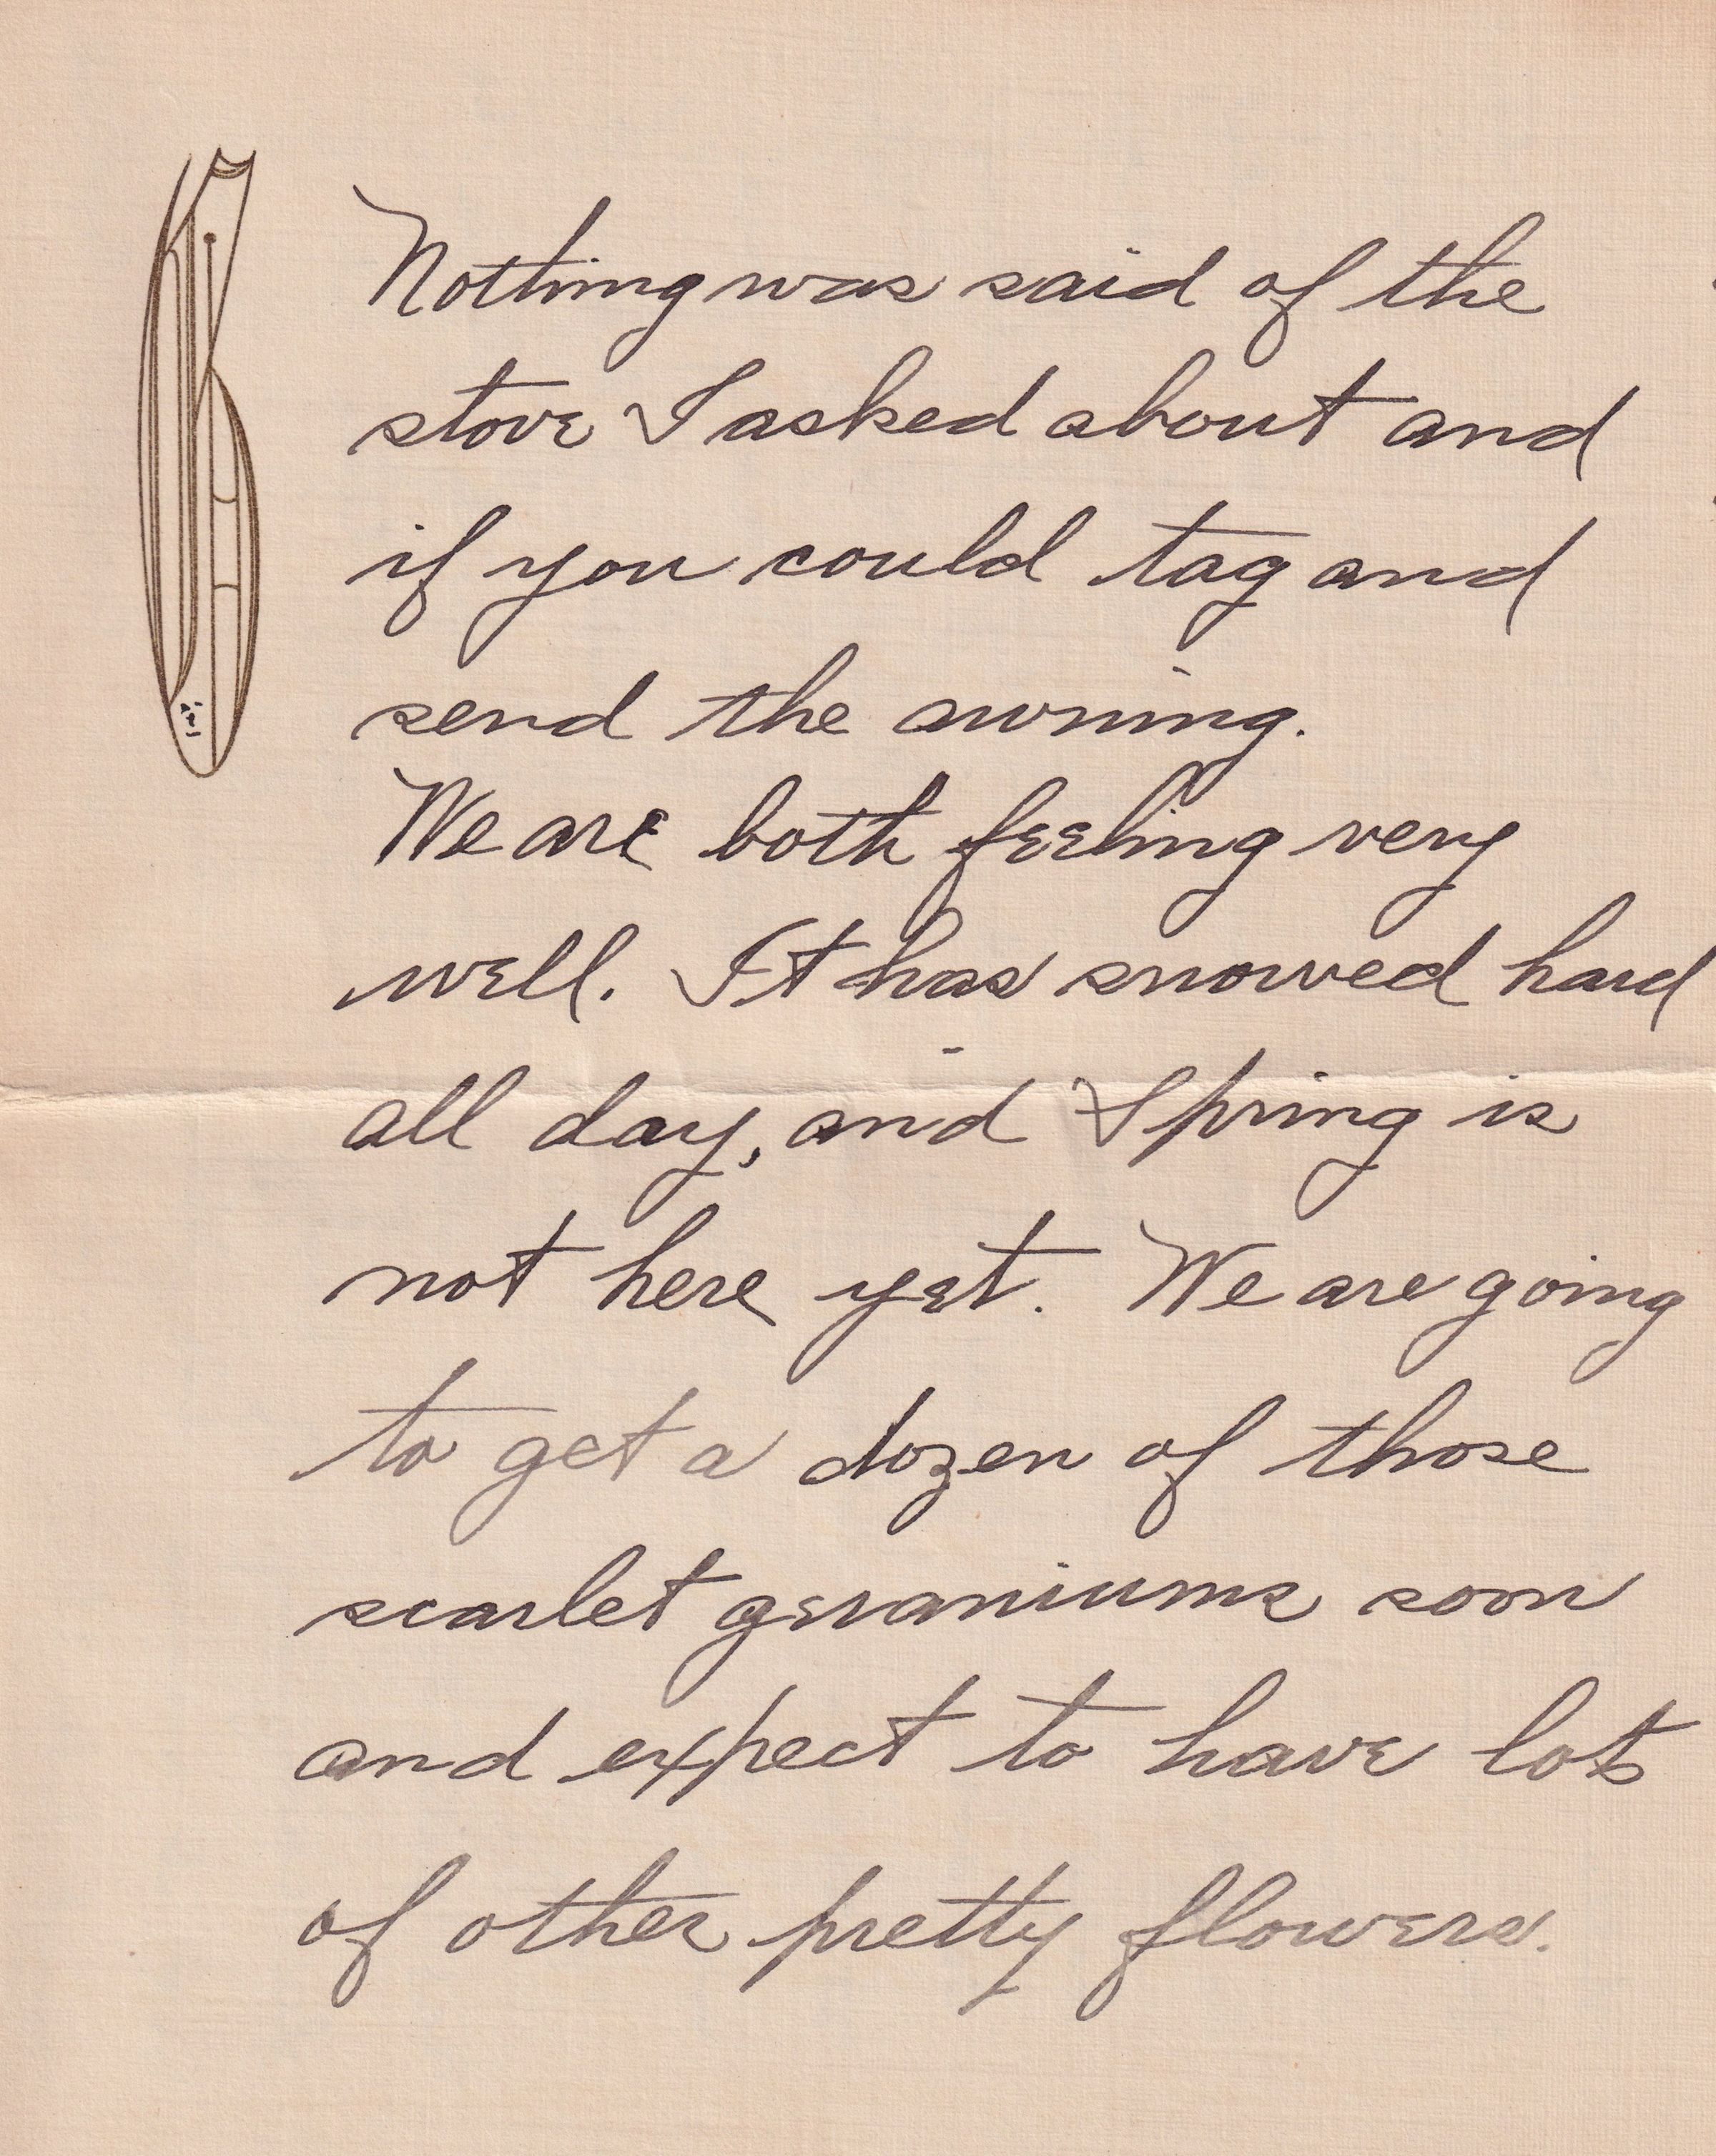 Nothing was said of the
stove I asked about and
if you could tag and
send the awning.
We are both feeling very
well. It has snowed hard
all day, and Spring is
not here yet. We are going
to get a dozen of those
scarlet geraniums soon
and expect to have lots
of other pretty flowers.